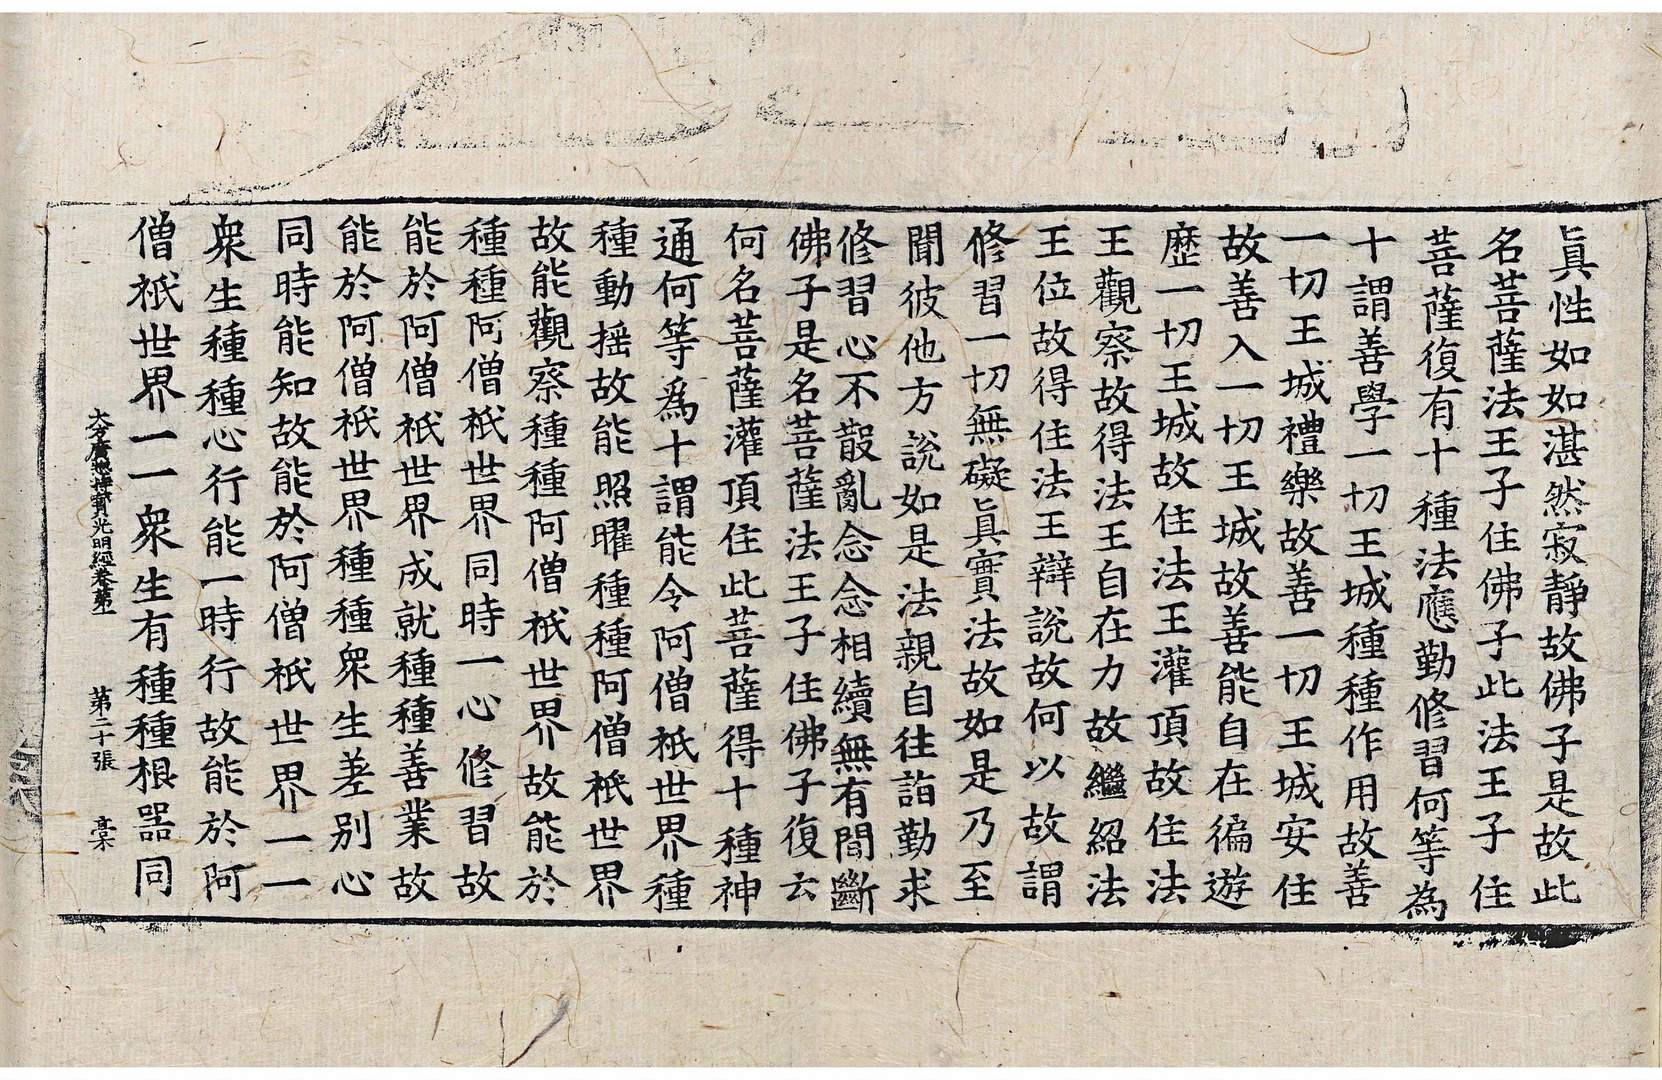 眞性如如湛然寂靜故佛子是故此
名菩薩法王子住佛子此法王子住
菩薩復有十種法應勤修習何等為
十謂善學一切王城種種作用故善
一切王城禮樂故善一切王城安住
故善入一切王城故善能自在徧遊
歷一切王城故住法王灌頂故住法
王觀察故得法王自在力故繼紹法
王位故得住法王辯說故何以故謂
修習一切無礙眞實法故如是乃至
聞彼他方說如是法親自往詣勤求
修習心不散亂念念相續無有間斷
佛子是名菩薩法王子住佛子復云
何名菩薩灌頂住此菩薩得十種神
通何等為十謂能令阿僧祇世界種
種動搖故能照曜種種阿僧祇世界
故能觀察種種阿僧祇世界故能於
種種阿僧祇世界同時一心修習故
能於阿僧祇世界成就種種善業故
能於阿僧祇世界種種衆生差別心
同時能知故能於阿僧祇世界一一
衆生種種心行能一時行故能於阿
僧祇世界一一衆生有種種根器同
大方廣摠持寶光明經卷第一 第二十張 槀